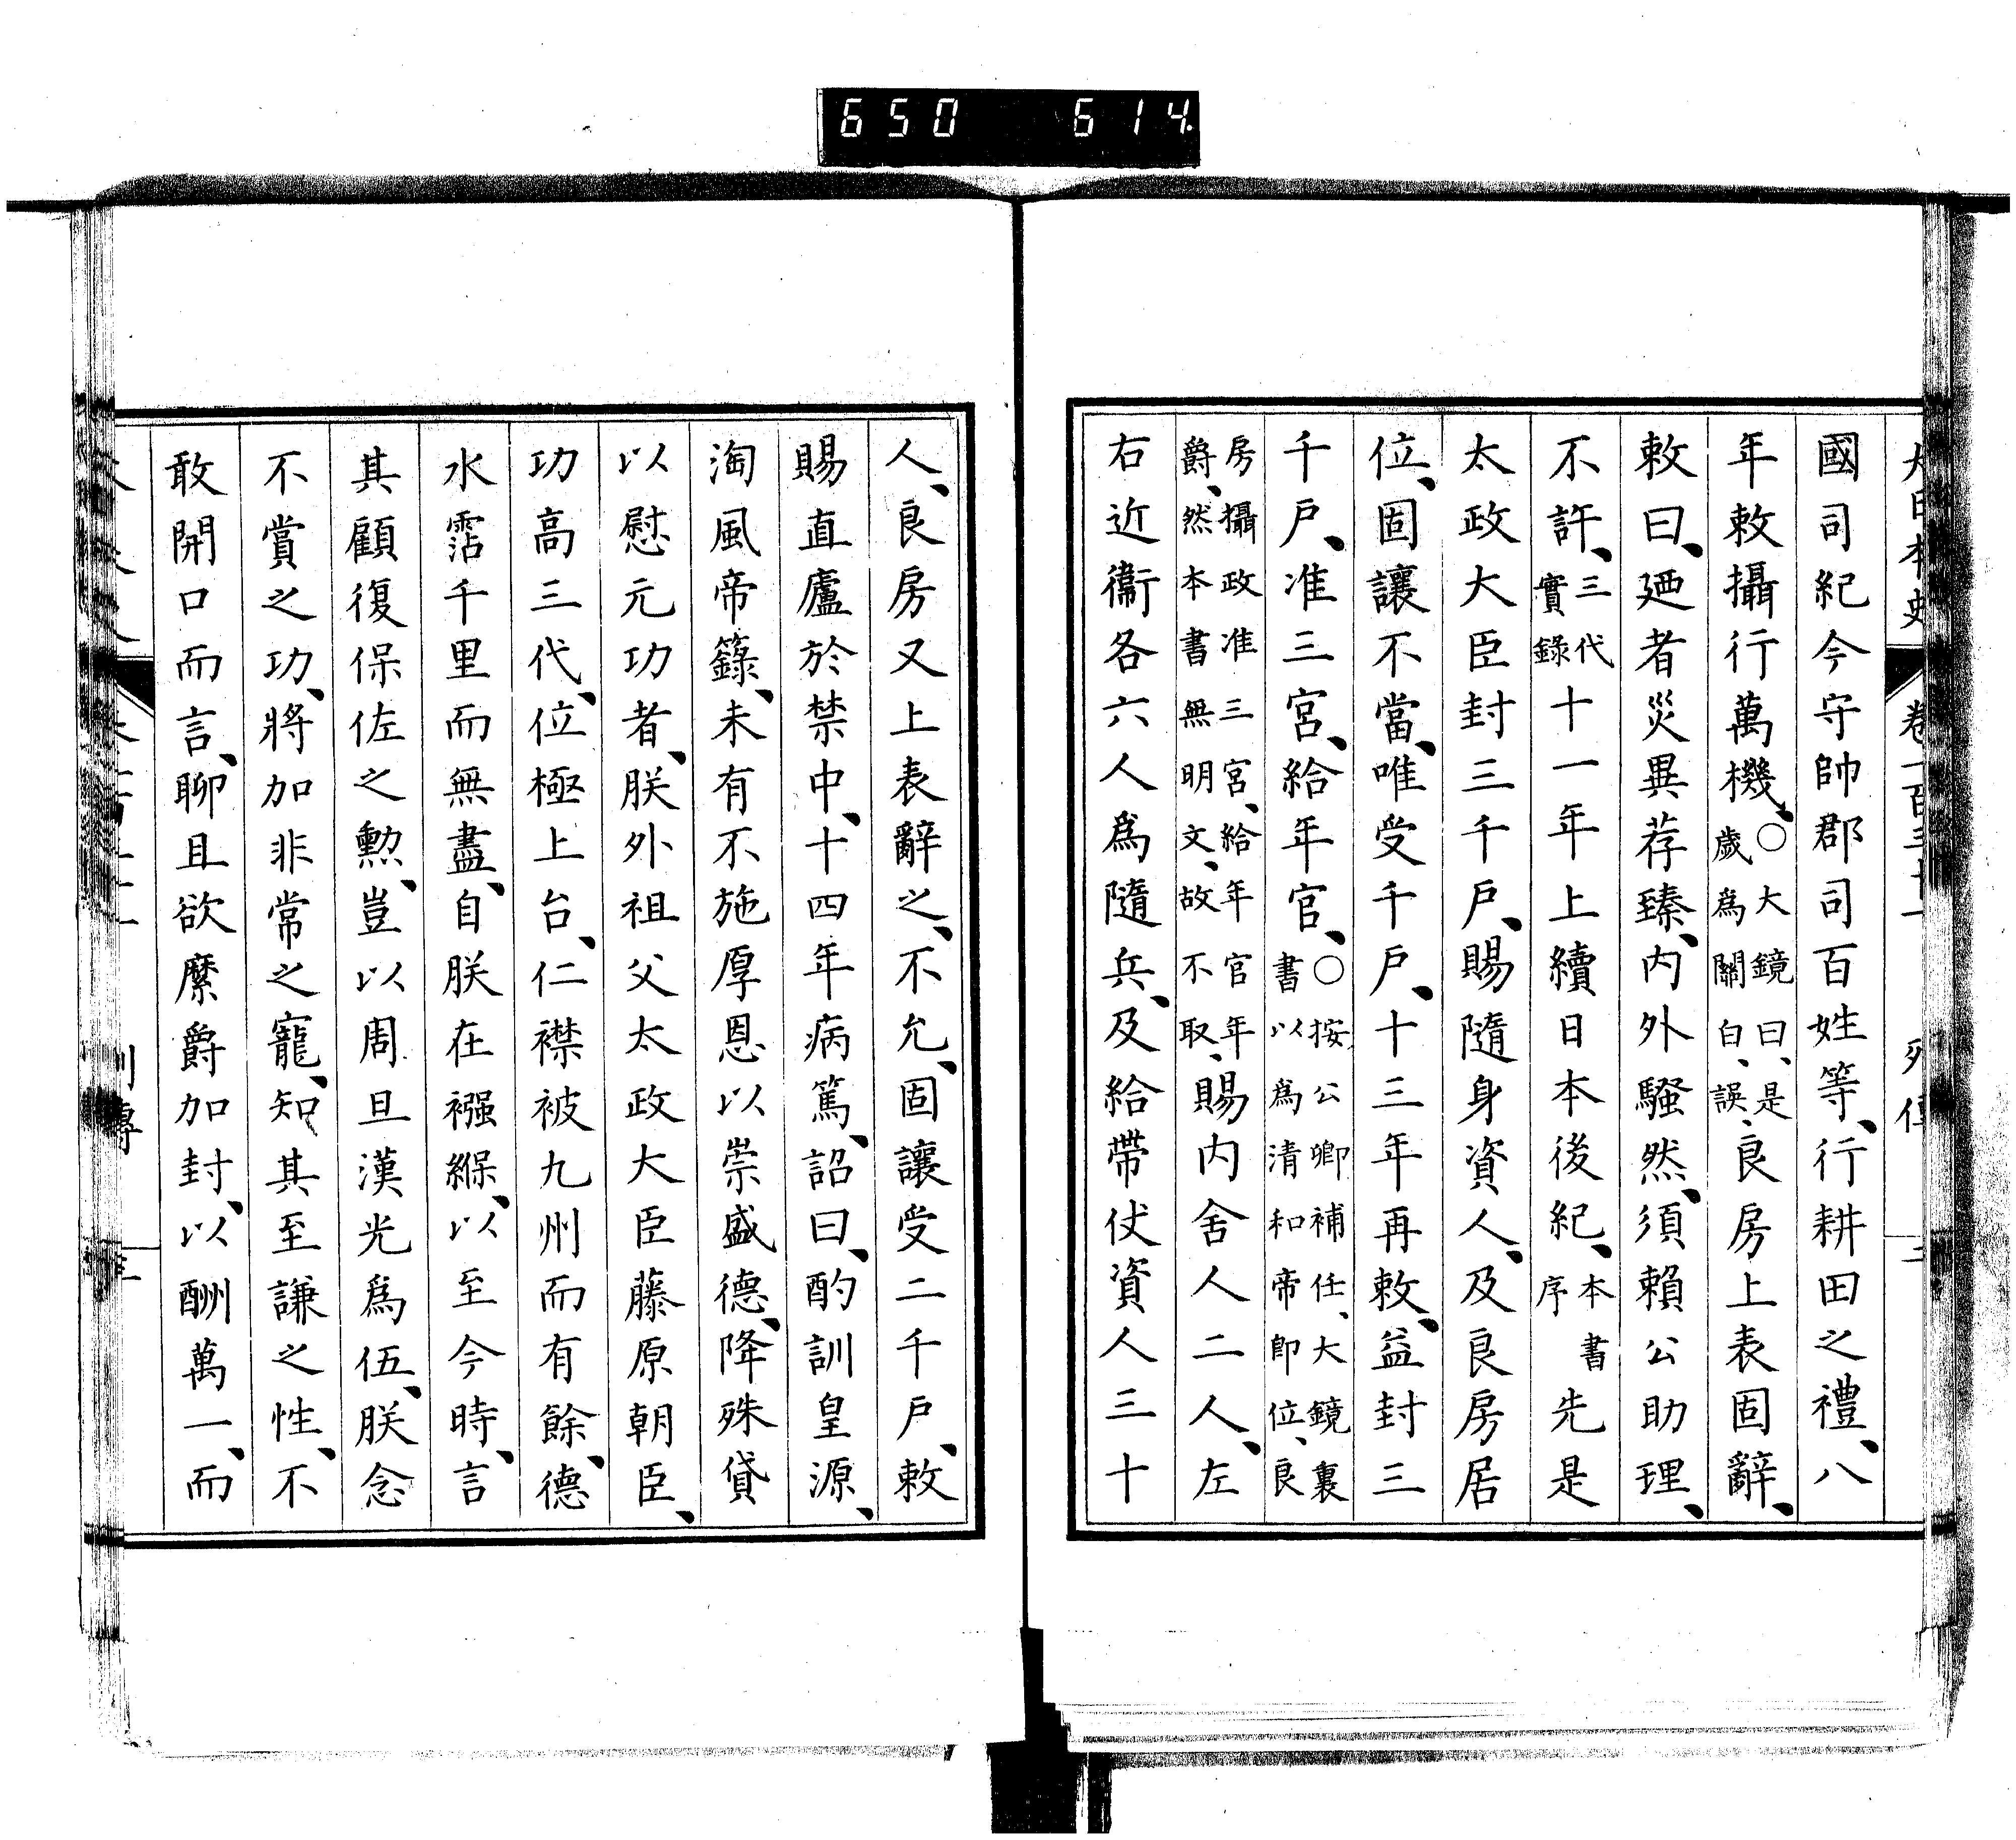 650 614
國司紀今守帥郡司百姓等、行耕田之禮、八
年敕攝行萬機、〇大鏡曰、是歲爲關白、誤、良房上表固辭、
敕曰、廼者災異荐臻、內外騷然、須賴公助理、
不許、三代實錄十一年上續日本後紀、本書序先是
太政大臣封三千戶、賜隨身資人、及良房居
位、固讓不當、唯受千戶、十三年再敕、益封三
千戶、准三宮、給年官、〇按公卿補任、大鏡裏書以爲淸和帝卽位、良
房攝政准三宮、給年官年爵、然本書無明文、故不取、賜內舍人二人、左
右近衞各六人爲隨兵、及給帶仗資人三十
人、良房又上表辭之、不允、固讓受二千戶、敕
賜直廬於禁中、十四年病篤、詔曰、酌訓皇源、
淘風帝籙、未有不施厚恩以崇盛德、降殊貸
以慰元功者、朕外祖父太政大臣藤原朝臣、
功高三代、位極上台、仁襟被九州而有餘、德
水霑千里而無盡、自朕在襁緥、以至今時、言
其顧復保佐之勲、豈以周旦漢光爲伍、朕念
不賞之功、將加非常之寵、知其至謙之性、不
敢開口而言、聊且欲縻爵加封、以酬萬一、而